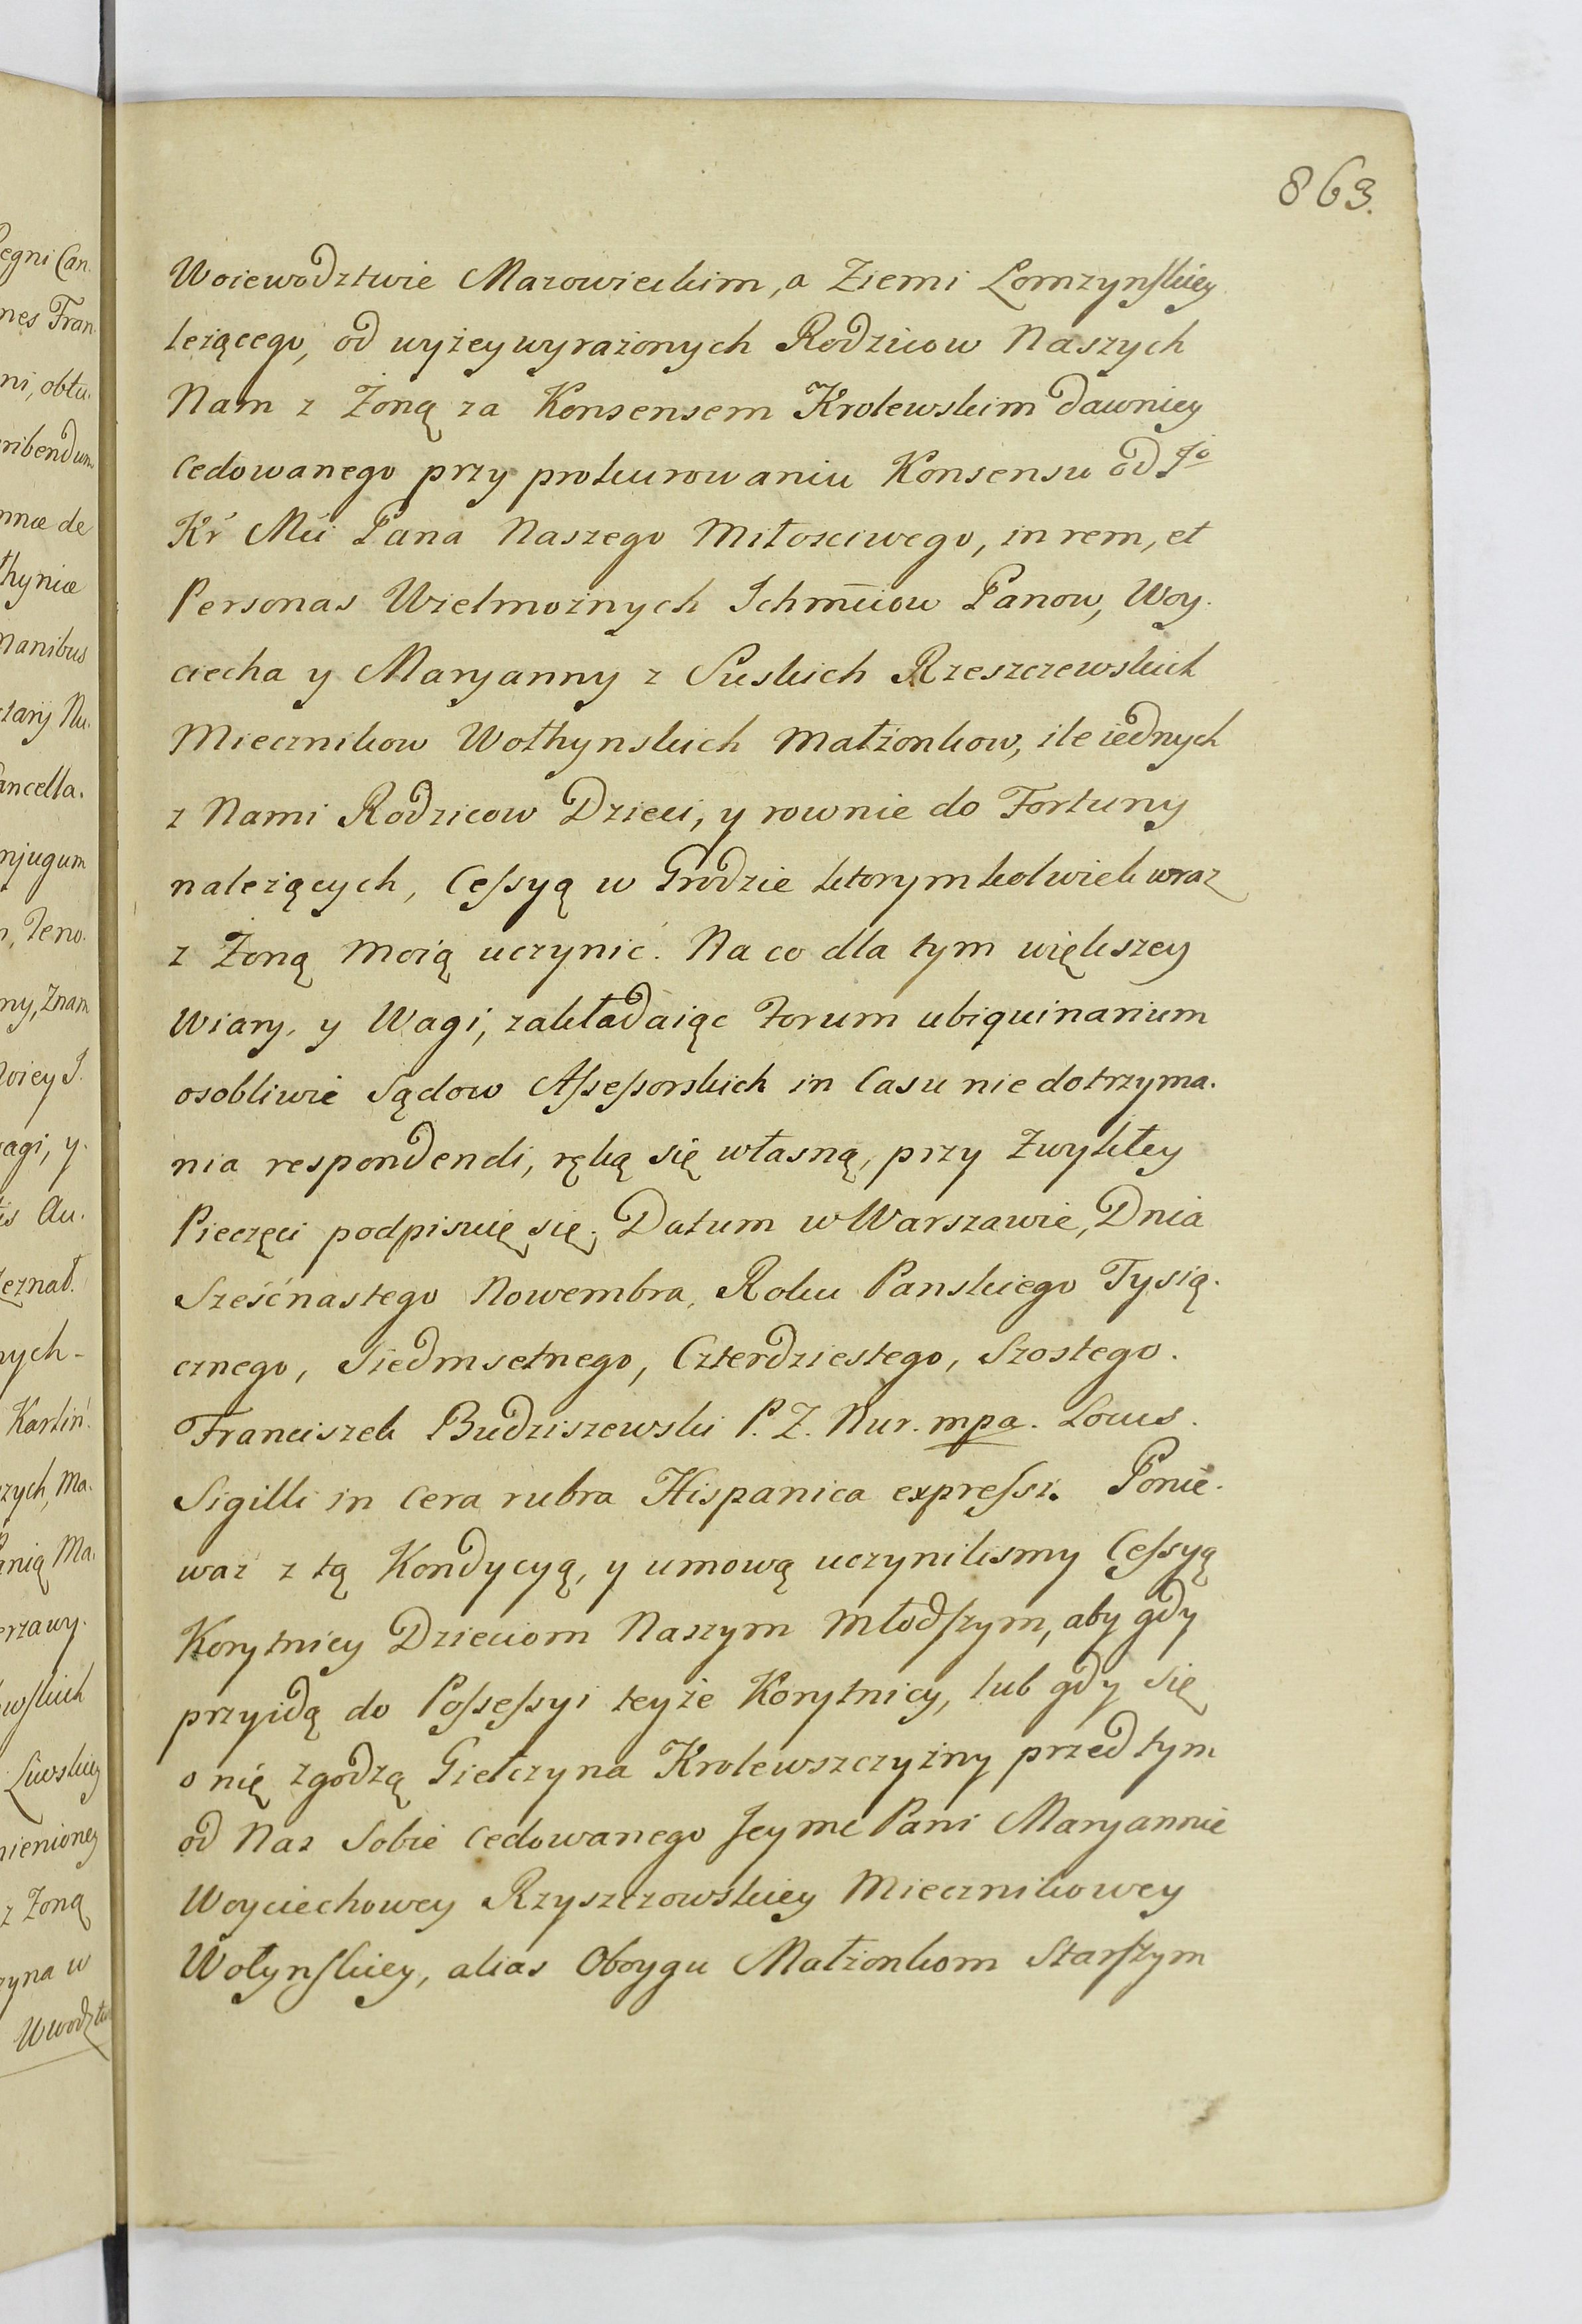 863.
Woiewodztwie Mazowieckim, a Ziemi Lomzynskiey
leżącego, od wyżey wyrażonych Rodzicow Naszych
Nam z Żoną za Konsensem Krolewskim dawniey
cedowanego przy prokurowaniu Konsensu od Jo
Kr Mci Pana Naszego Miłosciwego, in rem, et
Personas Wielmożnych Ichmciow Panow, Woy.
ciecha y Maryanny z Suskich Rzeszczewskich
Miecznikow Wołhynskich Małżonkow, ile iednych
z Nami Rodzicow Dzieci, y rownie do Fortuny
należących, Cessyą w Grodzie ktorymkolwiek wraz
z Żoną moią uczynić. Na co dla tym większey
Wiary, y Wagi, zakładaiąc Forum ubiquinarium
osobliwie Sądow Assessorskich in Casu niedotrzyma.
nia respondendi, ręką się własną, przy Zwykłey
Pieczęci podpisuię się. Datum w Warszawie, Dnia
Sześćnastego Nowembra, Roku Panskiego Tysią.
cznego, Siedmsetnego, Czterdziestego, Szostego.
Franciszek Budziszewski P. Z. Nur. mpa. Locus.
Sigilli in Cera rubra Hispanica expressi. Ponie.
waż z tą Kondycyą, y umową uczynilismy Cessyą
Korytnicy Dzieciom Naszym Młodszym, aby gdy
przyidą do Possessyi teyże Korytnicy, lub gdy się
o nię zgodzą Giełczyna Krolewszczyzny przed tym
od Nas Sobie cedowanego Jeymc Pani Maryannie
Woyciechowey Rzyszczowskiey Miecznikowey
Wołynskiey, alias Oboygu Małżonkom Starszym
egni Can.
nes Fran.
ni, obtu.
ribendum
nnæ de
thyniæ
manibus
ancella.
njugum
ny, Znam
agi, y.
is Au.
zeznał.
nych-
Karliń.
rzych, Ma.
anią Ma.
erzawy.
wskich
Liwskiey
mienioney
z Żoną
zyna w
Wwodztwie